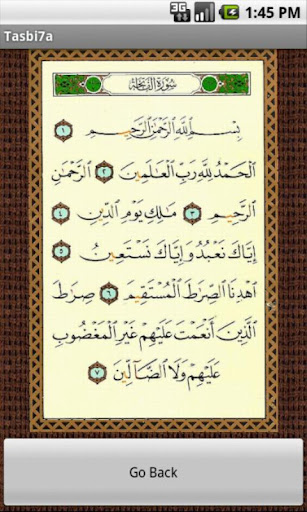 3G
1:45 PM
Tasbi7a
سُورَةُ الفَاتِحَةِ
بِسْمِ ٱللَّهِ ٱلرَّحْمَٰنِ ٱلرَّحِيمِ ١
ٱلْحَمْدُ لِلَّهِ رَبِّ ٱلْعَٰلَمِينَ ٢ ٱلرَّحْمَٰنِ
ٱلرَّحِيمِ ٣ مَٰلِكِ يَوْمِ ٱلدِّينِ ٤
إِيَّاكَ نَعْبُدُ وَإِيَّاكَ نَسْتَعِينُ ٥
ٱهْدِنَا ٱلصِّرَٰطَ ٱلْمُسْتَقِيمَ ٦ صِرَٰطَ
ٱلَّذِينَ أَنْعَمْتَ عَلَيْهِمْ غَيْرِ ٱلْمَغْضُوبِ
عَلَيْهِمْ وَلَا ٱلضَّآلِّينَ ٧
Go Back